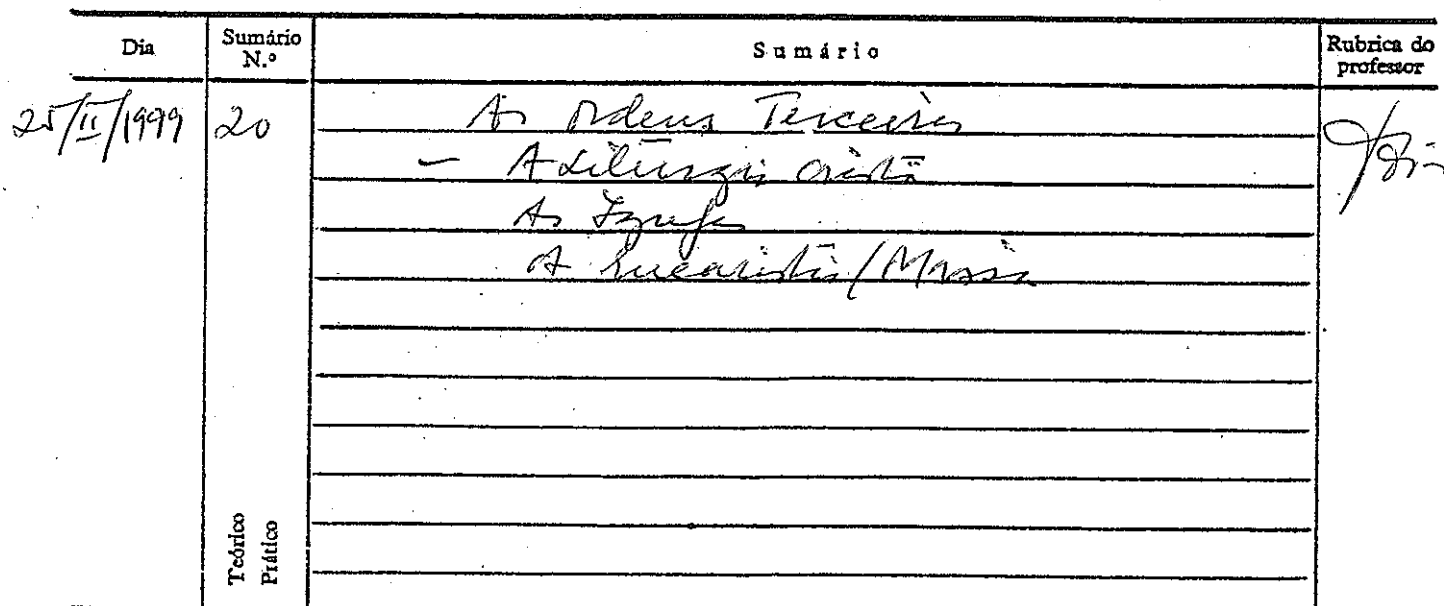 Dia Sumário N.º Sumário Rubrica do professor
25/II/1999 20 As Ordens Terceiras
- A Liturgia cristã
As Igrejas
A Eucaristia/Missa
Teórico
Prático